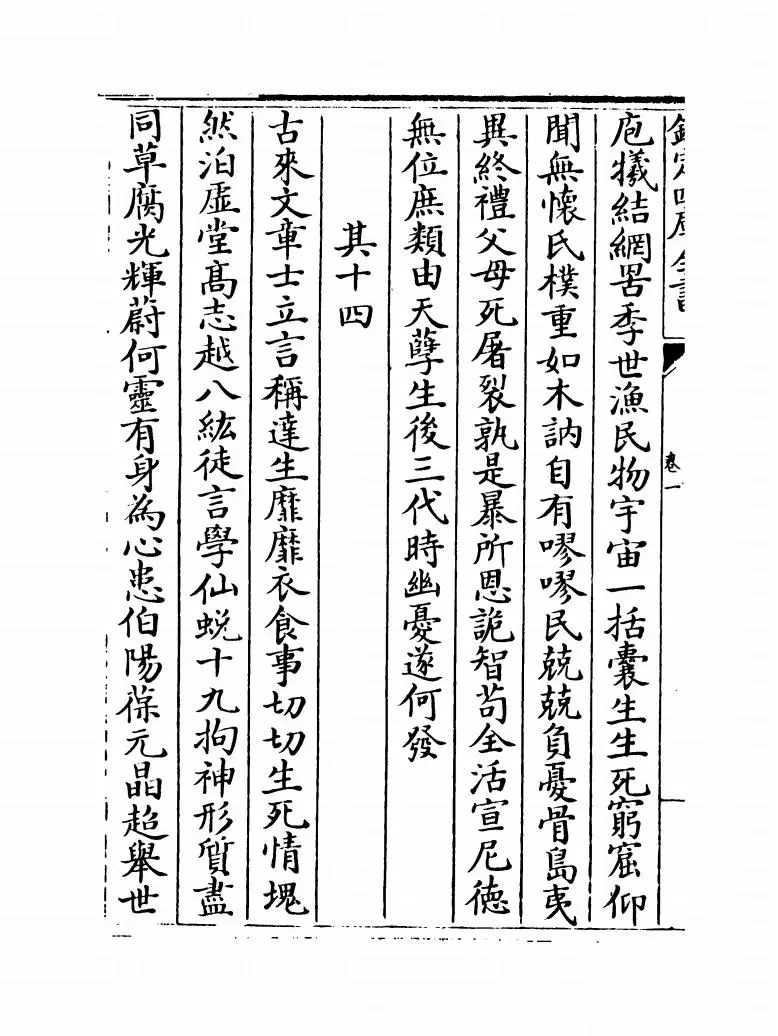 欽定四庫全書
卷一
庖犧結網罟季世漁民物宇宙一括囊生生死窮窟仰
聞無懷氏樸重如木訥自有嘐嘐民兢兢負憂骨島夷
異終禮父母死屠裂孰是暴所恩詭智苟全活宣尼德
無位庶類由天孽生後三代時幽憂遂何發
其十四
古來文章士立言稱達生靡靡衣食事切切生死情塊
然泊虛堂高志越八紘徒言學仙蛻十九拘神形質盡
同草腐光輝蔚何靈有身為心患伯陽葆元晶超舉世